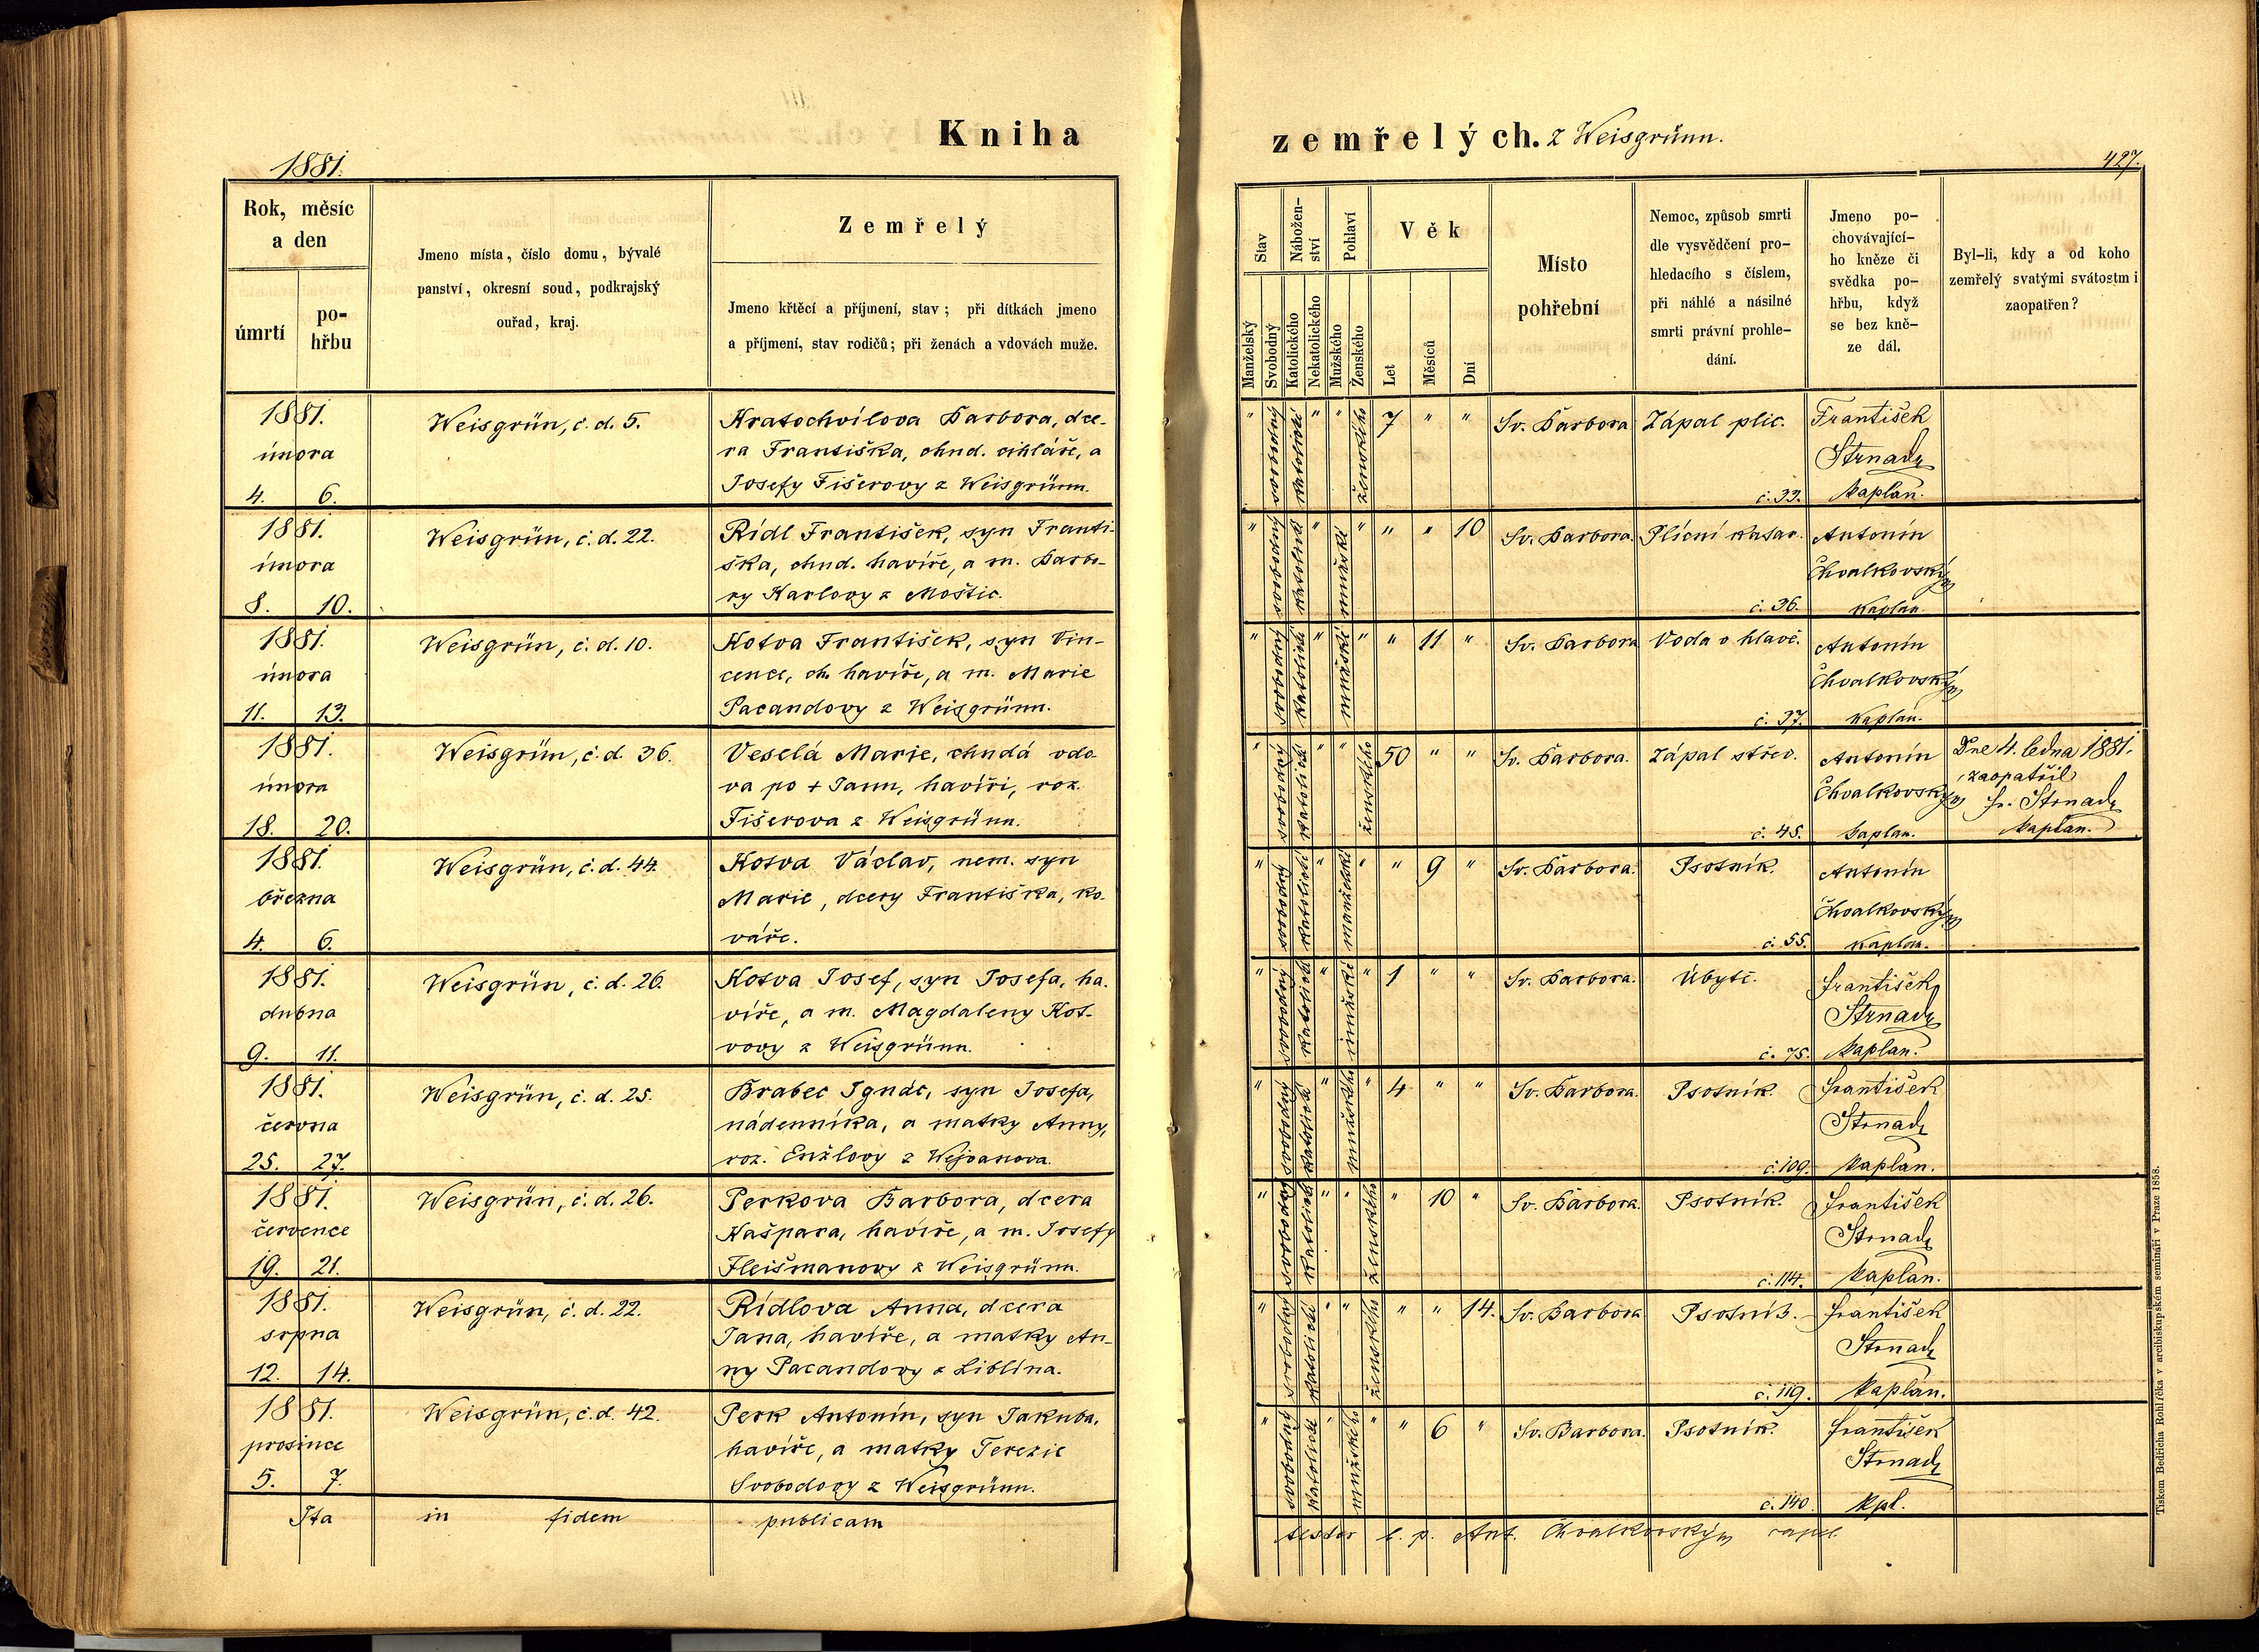 Kniha
1881.
Rok, měsíc
a den
úmrtí
po-
hřbu
Jmeno místa, číslo domu, bývalé
panství, okresní soud, podkrajský
ouřad, kraj.
Zemřelý
Jmeno křtěcí a příjmení, stav; při dítkách jmeno
a příjmení, stav rodičů; při ženách a vdovách muže.
1881.
února
4. 6.
Weisgrün, č. d. 5.
Kratochvílova Barbora, dce-
ra Františka, chud. cihláře, a
Josefy Fišerovy z Weisgrünn.
1881.
února
8. 10.
Weisgrün, č. d. 22.
Rídl František, syn Franti-
ška, chud. havíře, a m. Barbo-
ry Karlovy z Moštic.
1881.
února
11. 13.
Weisgrün, č. d. 10.
Kotva František, syn Vin-
cence, ch. havíře, a m. Marie
Pacandovy z Weisgrünn.
1881.
února
18. 20.
Weisgrün, č. d. 36.
Veselá Marie, chudá vdo-
va po + Janu, havíři, roz.
Fišerova z Weisgrünn.
1881.
března
4. 6.
Weisgrün, č. d. 44.
Kotva Václav, nem. syn
Marie, dcery Františka, ko-
váře.
1881.
dubna
9. 11.
Weisgrün, č. d. 26.
Kotva Josef, syn Josefa, ha-
víře, a m. Magdaleny Kot-
vovy z Weisgrünn.
1881.
června
25. 27.
Weisgrün, č. d. 25.
Brabec Ignác, syn Josefa,
nádenníka, a matky Anny,
roz. Enžlovy z Wejvanova.
1881.
července
19. 21.
Weisgrün, č. d. 26.
Perkova Barbora, dcera
Kašpara, havíře, a m. Josefy
Fleišmanovy z Weisgrünn.
1881.
srpna
12. 14.
Weisgrün, č. d. 22.
Rídlova Anna, dcera
Jana, havíře, a matky An-
ny Pacandovy z Liblína.
1881.
prosince
5. 7.
Weisgrün, č. d. 42.
Perk Antonín, syn Jakuba,
havíře, a matky Terezie
Svobodovy z Weisgrünn.
Ita in fidem publicam
zemřelých. z Weisgrünn.
427.
Stav
Nábožen-
ství
Pohlaví
Věk
Manželský
Svobodný
Katolického
Nekatolického
Mužského
Ženského
Let
Měsíců
Dní
Místo
pohřební
Nemoc, způsob smrti
dle vysvědčení pro-
hledacího s číslem,
při náhlé a násilné
smrti právní prohle-
dání.
Jmeno po-
chovávající-
ho kněze či
svědka po-
hřbu, když
se bez kně-
ze dál.
Byl-li, kdy a od koho
zemřelý svatými svátostmi
zaopatřen?
" svobodný katolické " " ženského 7 " " Sv. Barbora Zápal plic. František
Strnad
č. 33. kaplan.
" svobodný katolické " mužské " " " 10 Sv. Barbora. Plícní katar. Antonín
Chvalkovský
č. 36. kaplan
" svobodný katolické " mužské " " 11 " Sv. Barbora Voda v hlavě. Antonín
Chvalkovský
č. 37. kaplan.
" svobodný katolické " " ženského 50 " " Sv. Barbora. Zápal střev. Antonín
Chvalkovský
č. 45. kaplan.
Dne 4. ledna 1881.
zaopatřil
Fr. Strnad
kaplan.
" svobodný katolické " " " 9 " Sv. Barbora. Psotník. Antonín
Chvalkovský
č. 55. kaplan.
" svobodný katolické " mužské " 1 " " Sv. Barbora. Úbytě. František
Strnad
č. 75. kaplan.
" svobodný katolické " mužského " 4 " " Sv. Barbora. Psotník. František
Strnad
č. 109. kaplan.
" svobodný katolické " " ženského " 10 " Sv. Barbora. Psotník. František
Strnad
č. 114. kaplan.
" svobodný katolické " " ženského " " 14. Sv. Barbora Psotník. František
Strnad
č. 119. kaplan.
" svobodný katolické " mužského " " 6 " Sv. Barbora. Psotník. František
Strnad
č. 140. kpl.
testor l. p. Ant. Chvalkovský capl.
Tiskem Bedřicha Rohlíčka v arcibiskupském semináři v Praze 1858.